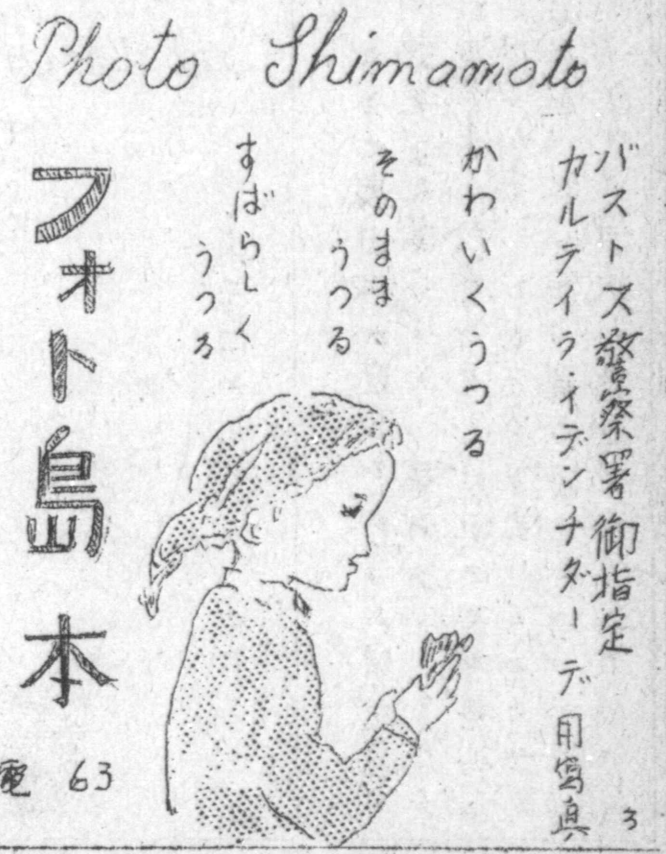 Photo Shimamoto
バストス警察署御指定
カルテイラ・イデンチダーデ用写真
かわいくうつる
そのまま
うつる
すばらしく
うつる
フォト島本
電 63
3